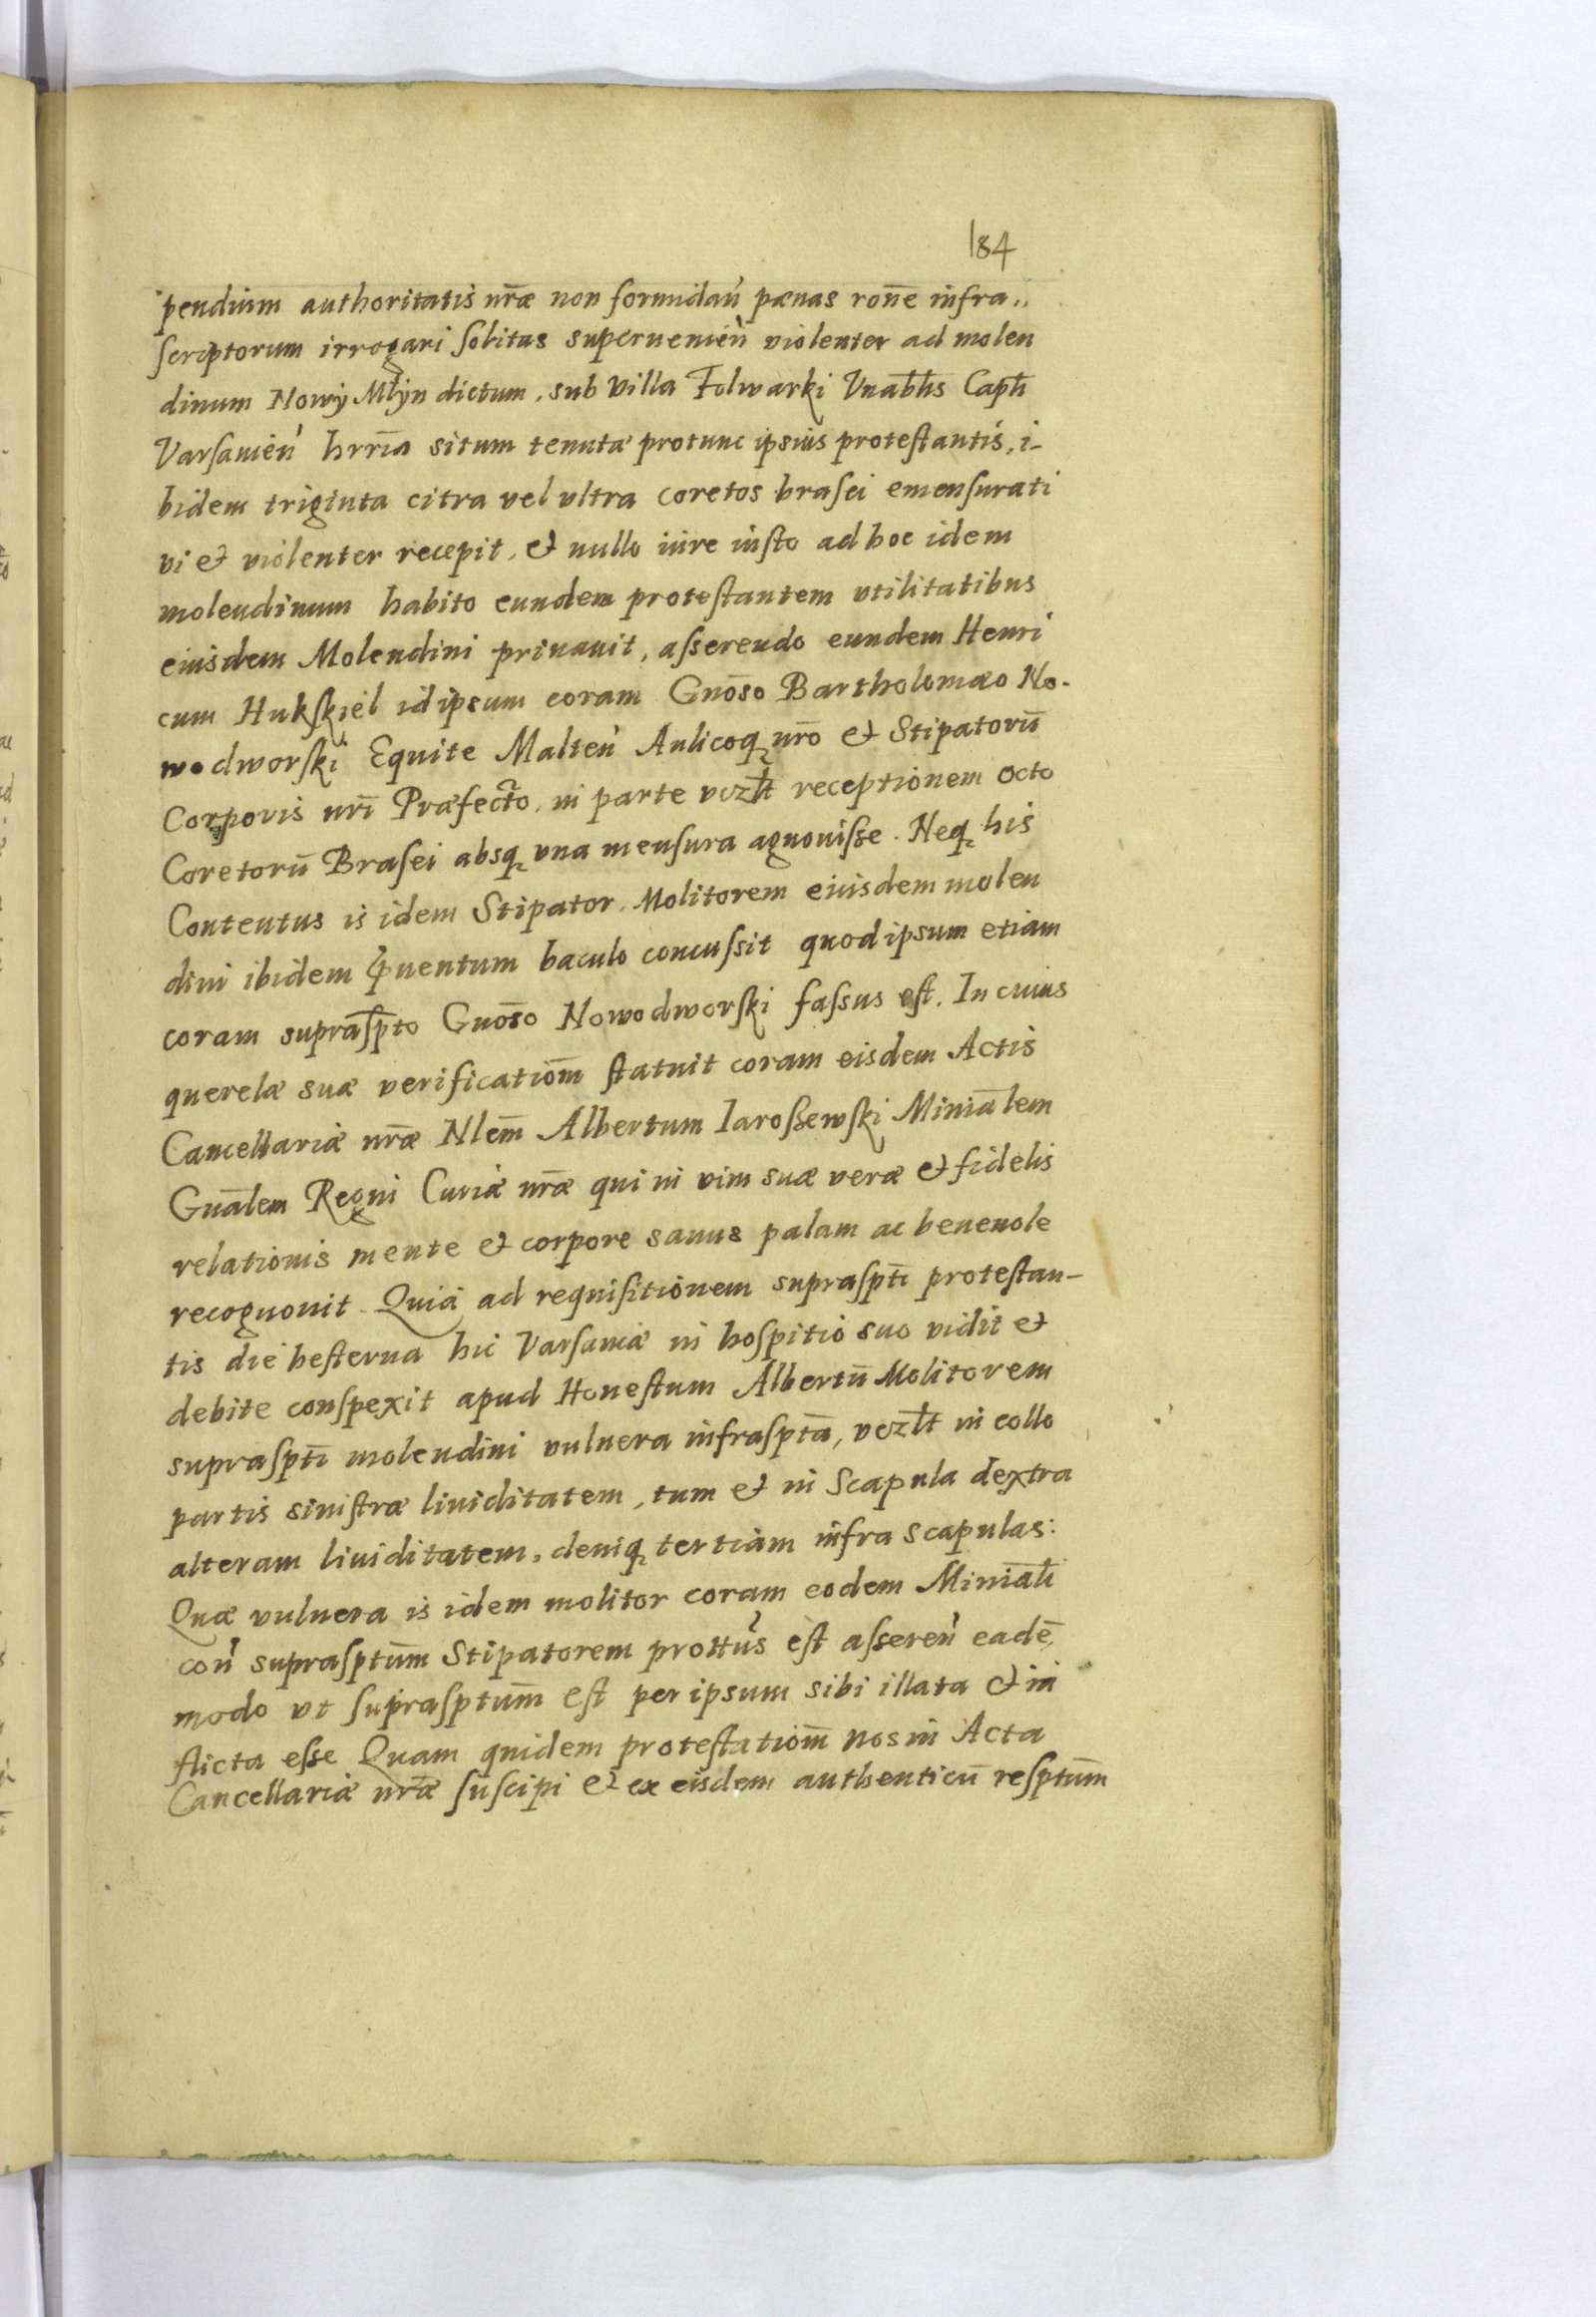 184
pendium authoritatis nr̄æ non formidan̄ pænas ron̄e infra„
scriptorum irrogari solitas superuenien̄ violenter ad molen
dinum Nowy Młyn dictum, sub villa Folwarki Vnabłis Capłi
Varsauien̄ hrr̄ia situm tenutæ protunc ipsius protestantis, i-
bidem triginta citra vel vltra coretos brasei emensurati
vi et violenter recepit, et nullo iure iusto ad hoc idem
molendinum habito eundem protestantem vtilitatibus
eiusdem Molendini priuauit, asserendo eundem Henri
cum Hukskiel id ipsum coram Gnōso Bartholomæo No-
wodworski Equite Malten̄ Aulicoq nr̄o et Stipatorū
Corporis nr̄i Præfecto, in parte vczłt receptionem octo
Coretorū Brasei absq vna mensura agnouisse. Neq his
Contentus is idem Stipator, Molitorem eiusdem molen
dini ibidem ꝓuentum baculo concussit quod ipsum etiam
coram supraspt̄o Gnōso Nowodworski fassus est. In cuius
querelæ suæ verificatiōm statuit coram eisdem Actis
Cancellariæ nr̄æ Nlēm Albertum Iarossewski Miniālem
Gnālem Regni Curiæ nr̄æ qui in vim suæ veræ et fidelis
relationis mente et corpore sanus palam ac beneuole
recognouit. Quia ad requisitionem supraspt̄i protestan-
tis die hesterna hic Varsauiæ in hospitio suo vidit et
debite conspexit apud Honestum Albertū Molitorem
supraspt̄i molendini vulnera infraspt̄a, vczłt in collo
partis sinistræ liuiditatem, tum et in Scapula dextra
alteram liuiditatem, deniq tertiam infra scapulas:
Quæ vulnera is idem molitor coram eodem Miniāłi
con̄ suprasptūm Stipatorem prottūs est asseren̄ eadē
modo vt suprasptūm est per ipsum sibi illata et in
flicta esse Quam quidem protestatiōm nos in Acta
Cancellariæ nr̄æ suscipi et ex eisdem authenticū resptūm